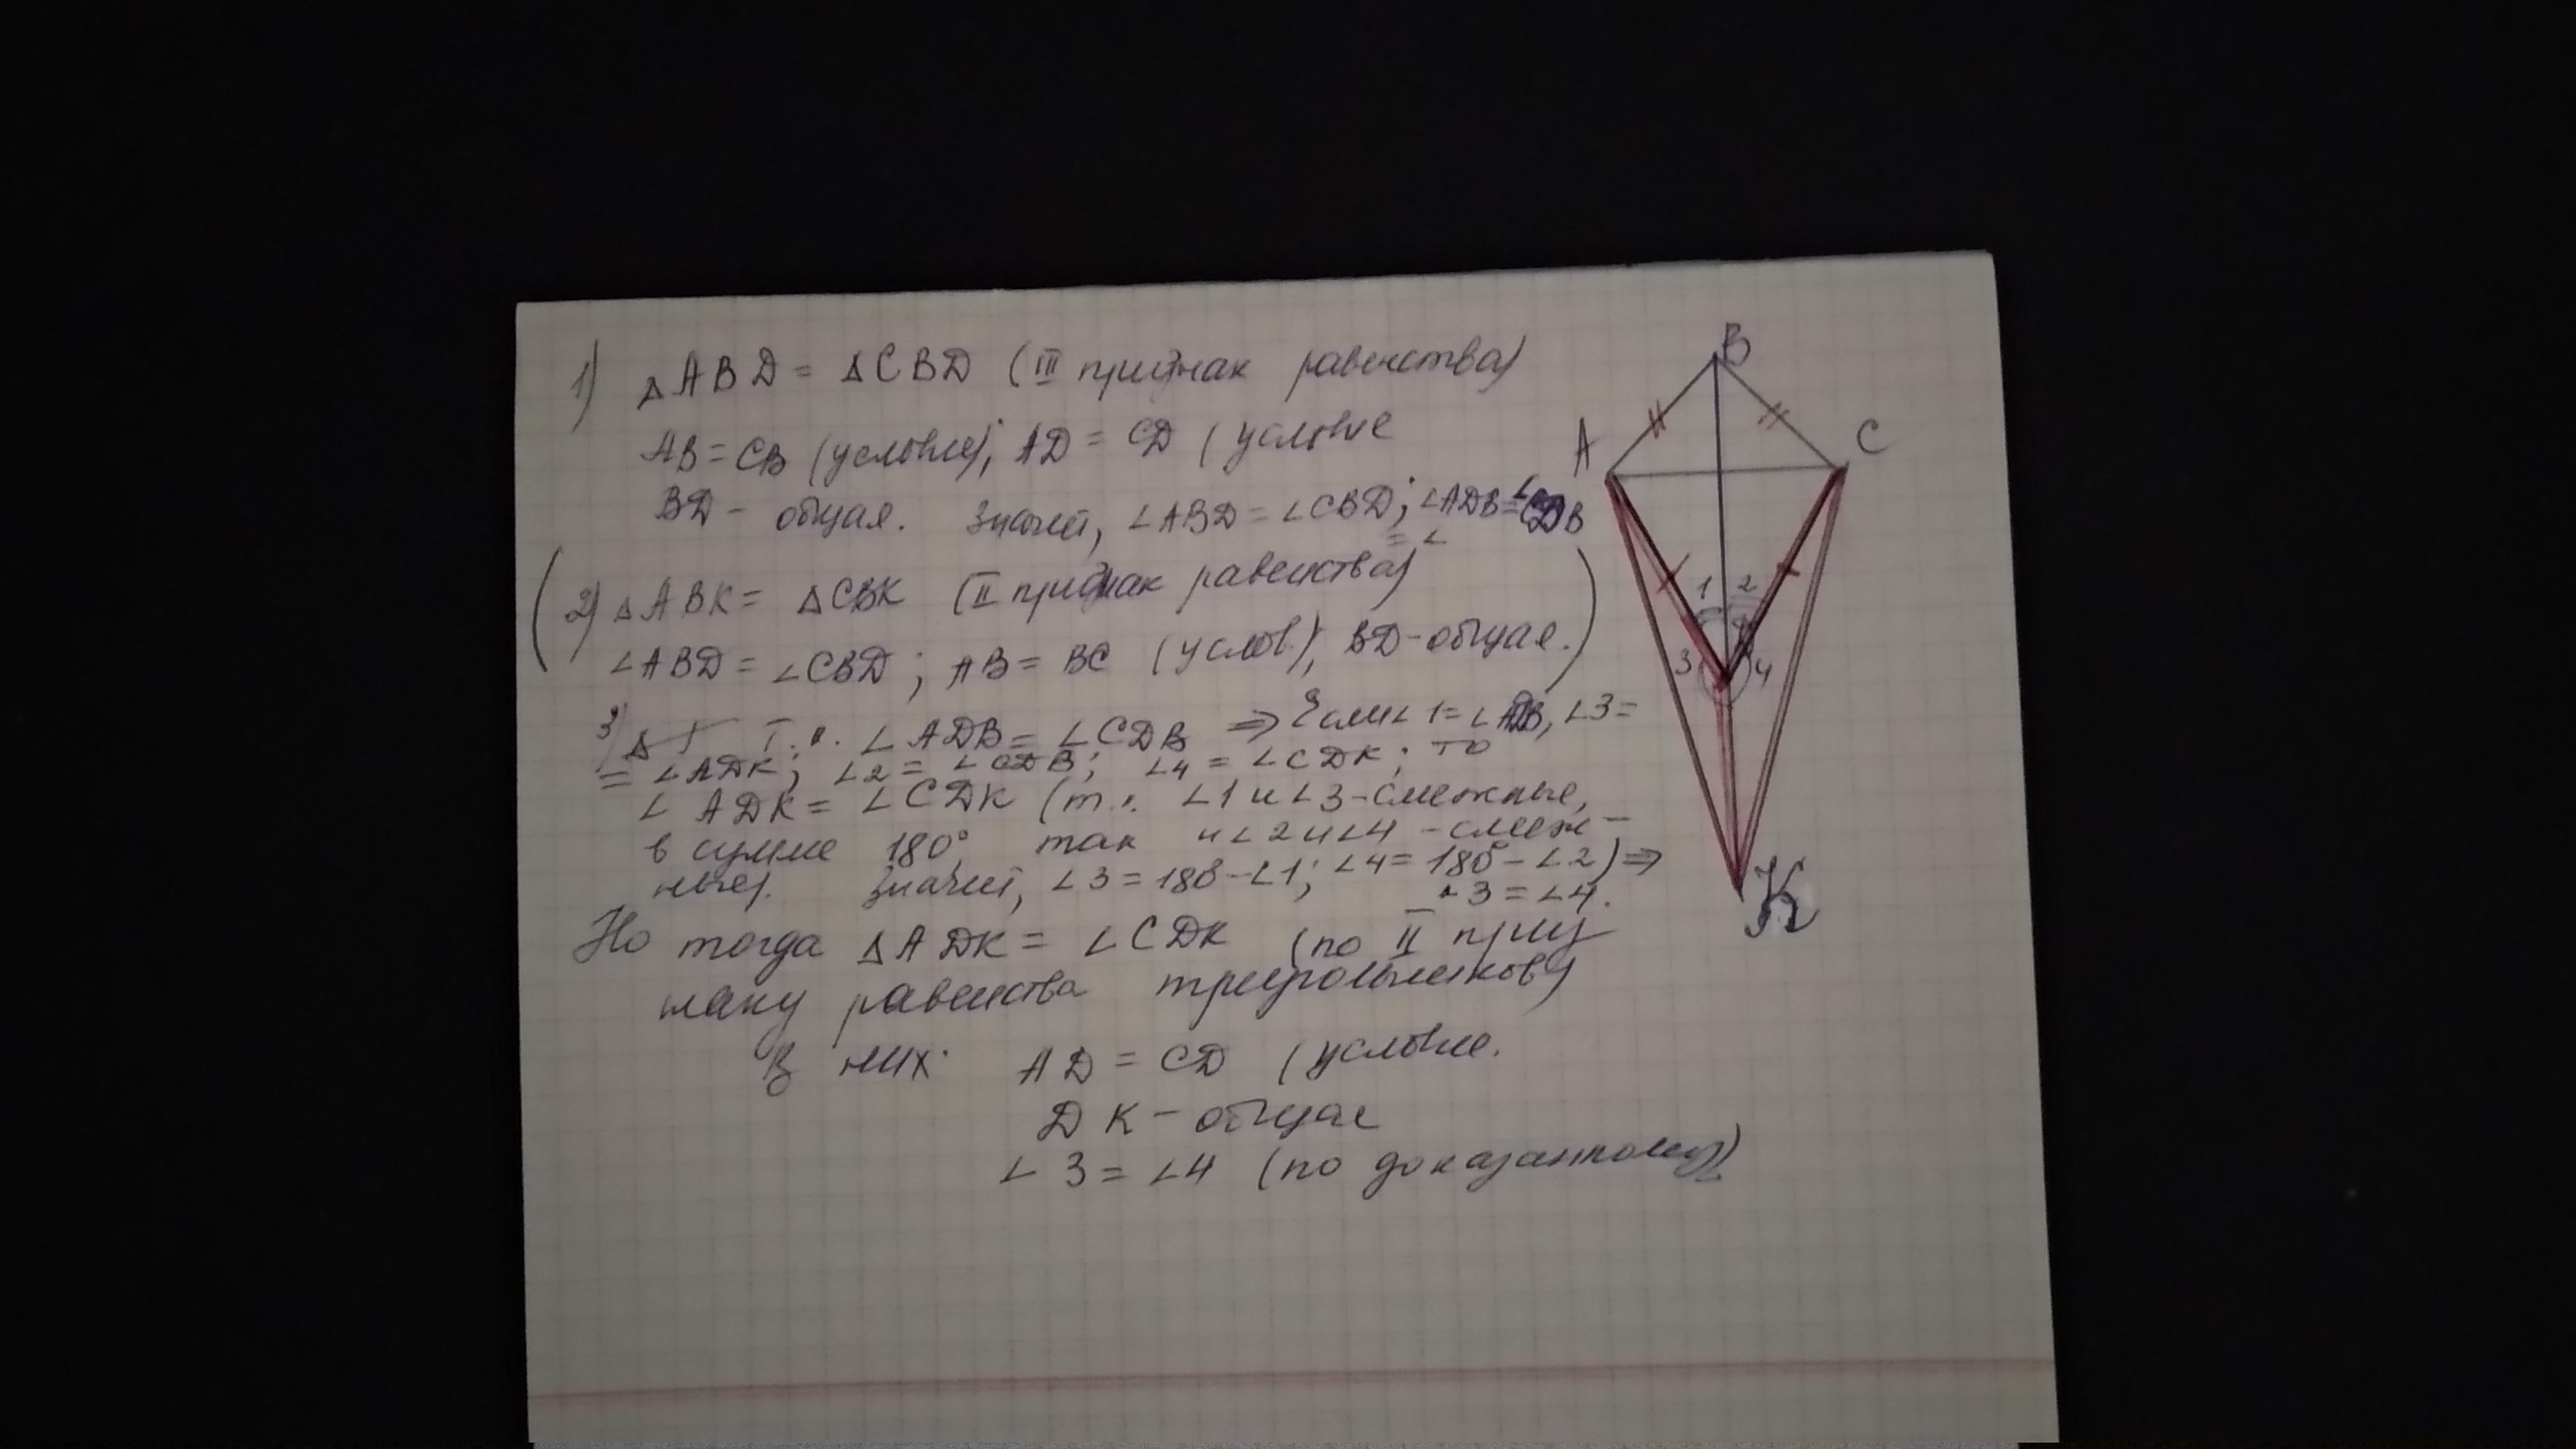 1) ΔABD = ΔCBD (III признак равенства)
AB = CB (условие); AD = CD (условие
BD - общая. Значит, ∠ABD = ∠CBD; ∠ADB = ∠CDB
= ∠
(2) ΔABK = ΔCBK (II признак равенства)
∠ABD = ∠CBD; AB = BC (услов.); BD - общая.)
3) Δ Т.к. ∠ADB = ∠CDB ⇒ Если ∠1 = ∠ADB, ∠3 =
= ∠ADK; ∠2 = ∠CDB; ∠4 = ∠CDK; то
∠ADK = ∠CDK (т.к. ∠1 и ∠3 - смежные,
в сумме 180°, так и ∠2 и ∠4 - смеж-
ные). Значит, ∠3 = 180° - ∠1; ∠4 = 180° - ∠2) ⇒
∠3 = ∠4.
Но тогда ΔADK = ∠CDK (по II приз
наку равенства треугольников)
В них: AD = CD (условие.
DK - общая
∠3 = ∠4 (по доказанному)
B
A
C
1 2
3 4
K